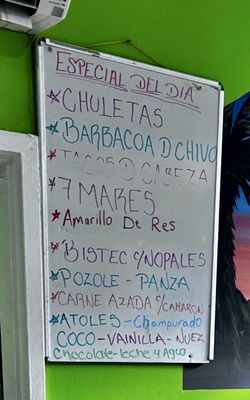 ESPECIAL DEL DIA
*CHULETAS
*BARBACOA D CHIVO
*TACOS D CABEZA
*7 MARES
*Amarillo De Res
*BISTEC C/NOPALES
*POZOLE-PANZA
*CARNE AZADA C/CAMARON
*ATOLES-Champurado
COCO-VAINILLA-NUEZ
Chocolate-leche y Agua